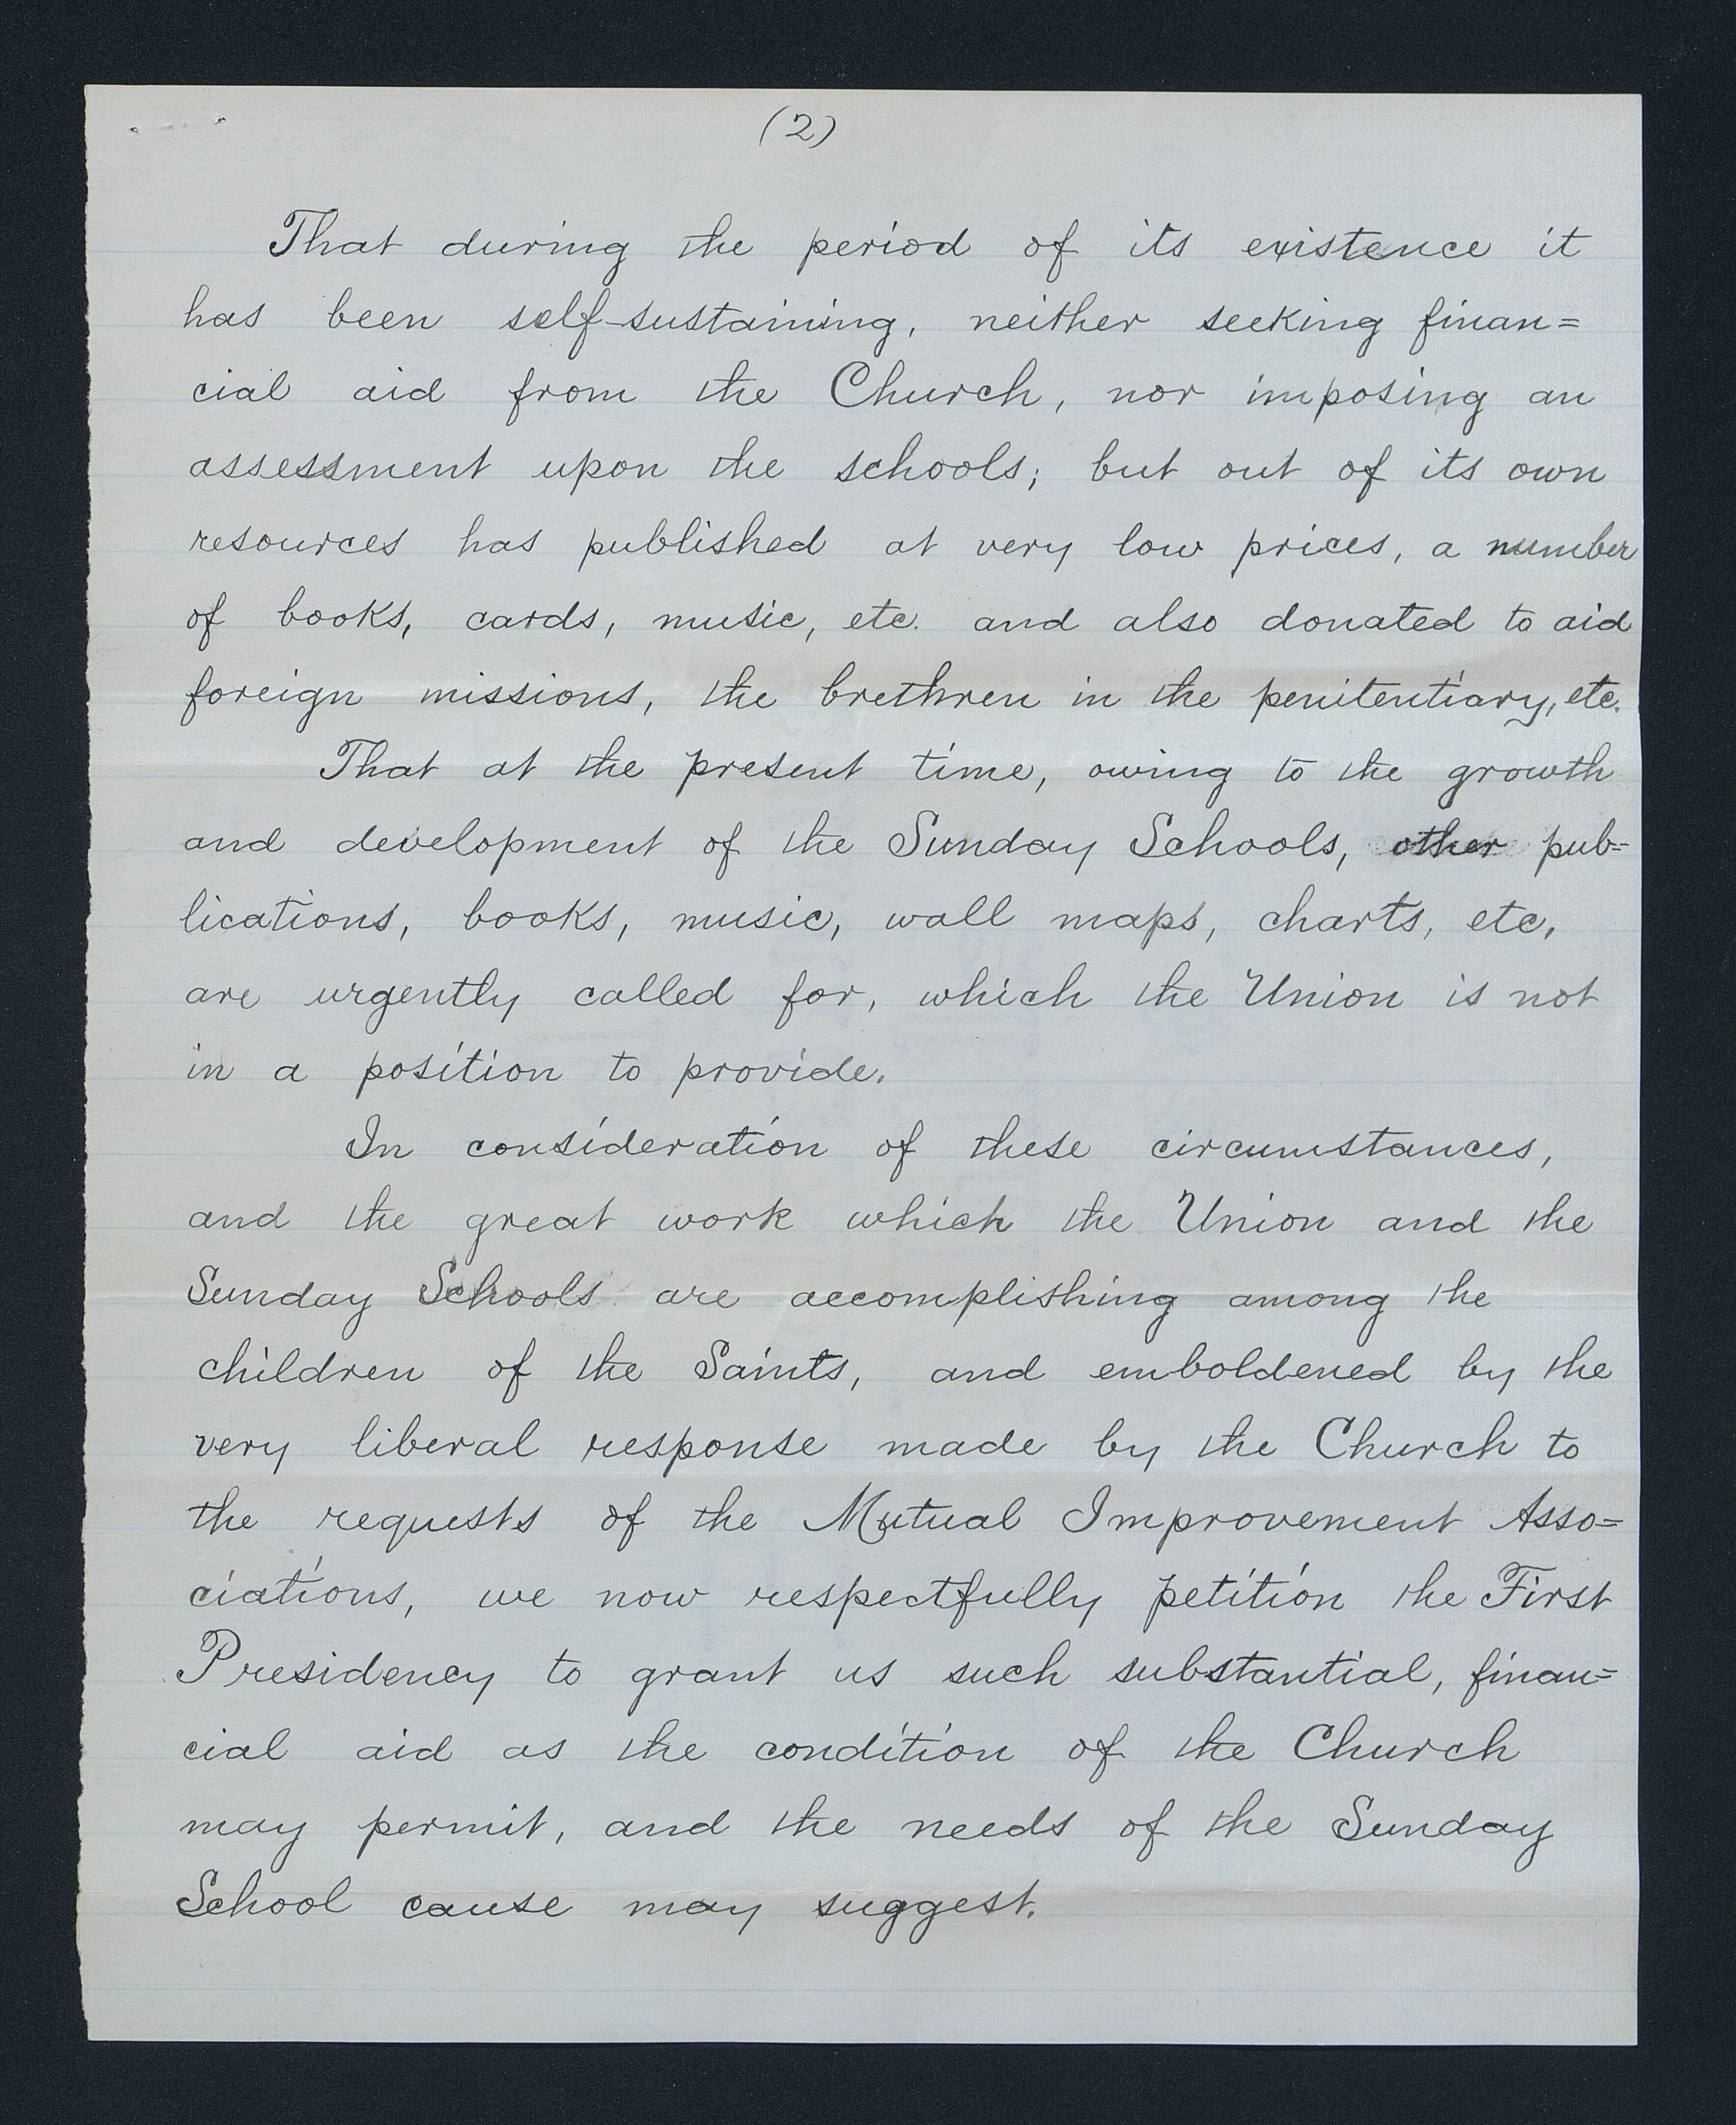 (2)
That during the period of its existence it
has been self-sustaining, neither seeking finan=
cial aid from the Church, nor imposing an
assessment upon the schools; but out of its own
resources has published at very low prices, a number
of books, cards, music, etc. and also donated to aid
foreign missions, the brethren in the penitentiary, etc.
That at the present time, owing to the growth
and development of the Sunday Schools, other pub=
lications, books, music, wall maps, charts, etc,
are urgently called for, which the Union is not
in a position to provide.
In consideration of these circumstances,
and the great work which the Union and the
Sunday Schools are accomplishing among the
children of the Saints, and emboldened by the
very liberal response made by the Church to
the requests of the Mutual Improvement Asso=
ciations, we now respectfully petition the First
Presidency to grant us such substantial, finan=
cial aid as the condition of the Church
may permit, and the needs of the Sunday
School cause may suggest.